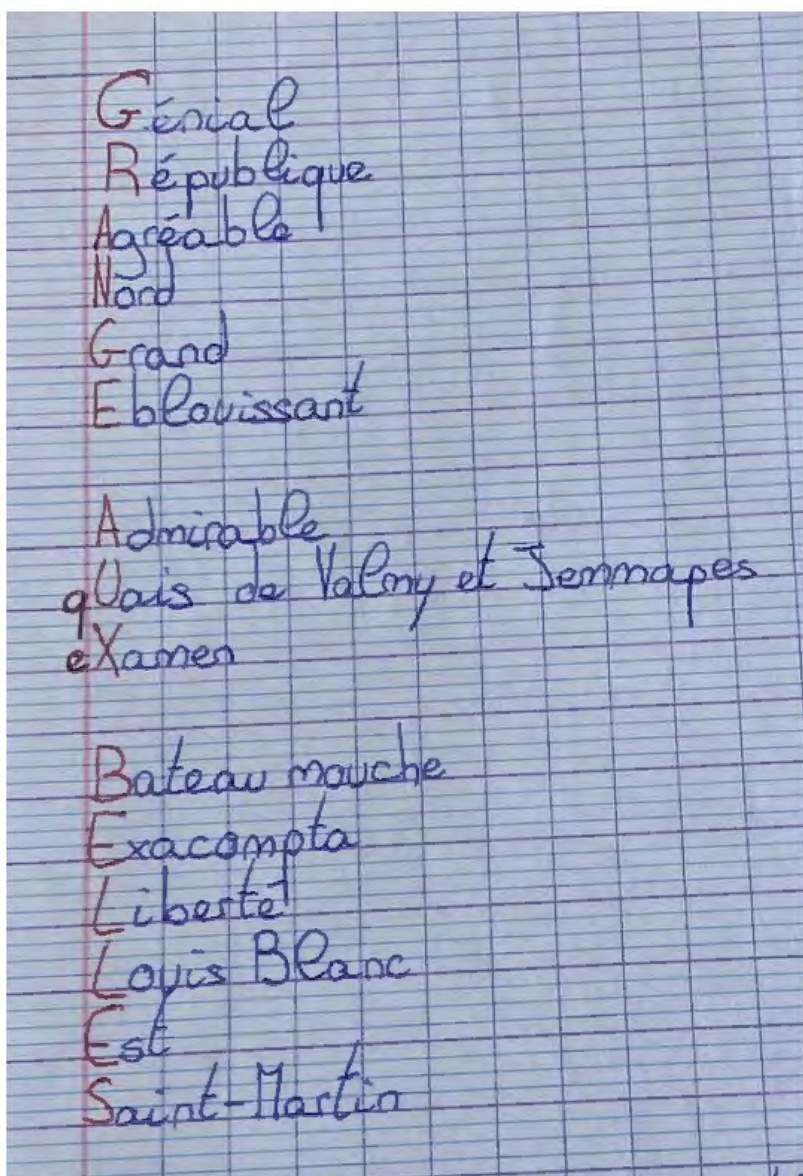 Génial
République
Agréable
Nord
Grand
Eblouissant
Admirable
qUais de Valmy et Jemmapes
eXamen
Bateau mouche
Exacompta
Liberté
Louis Blanc
Est
Saint-Martin